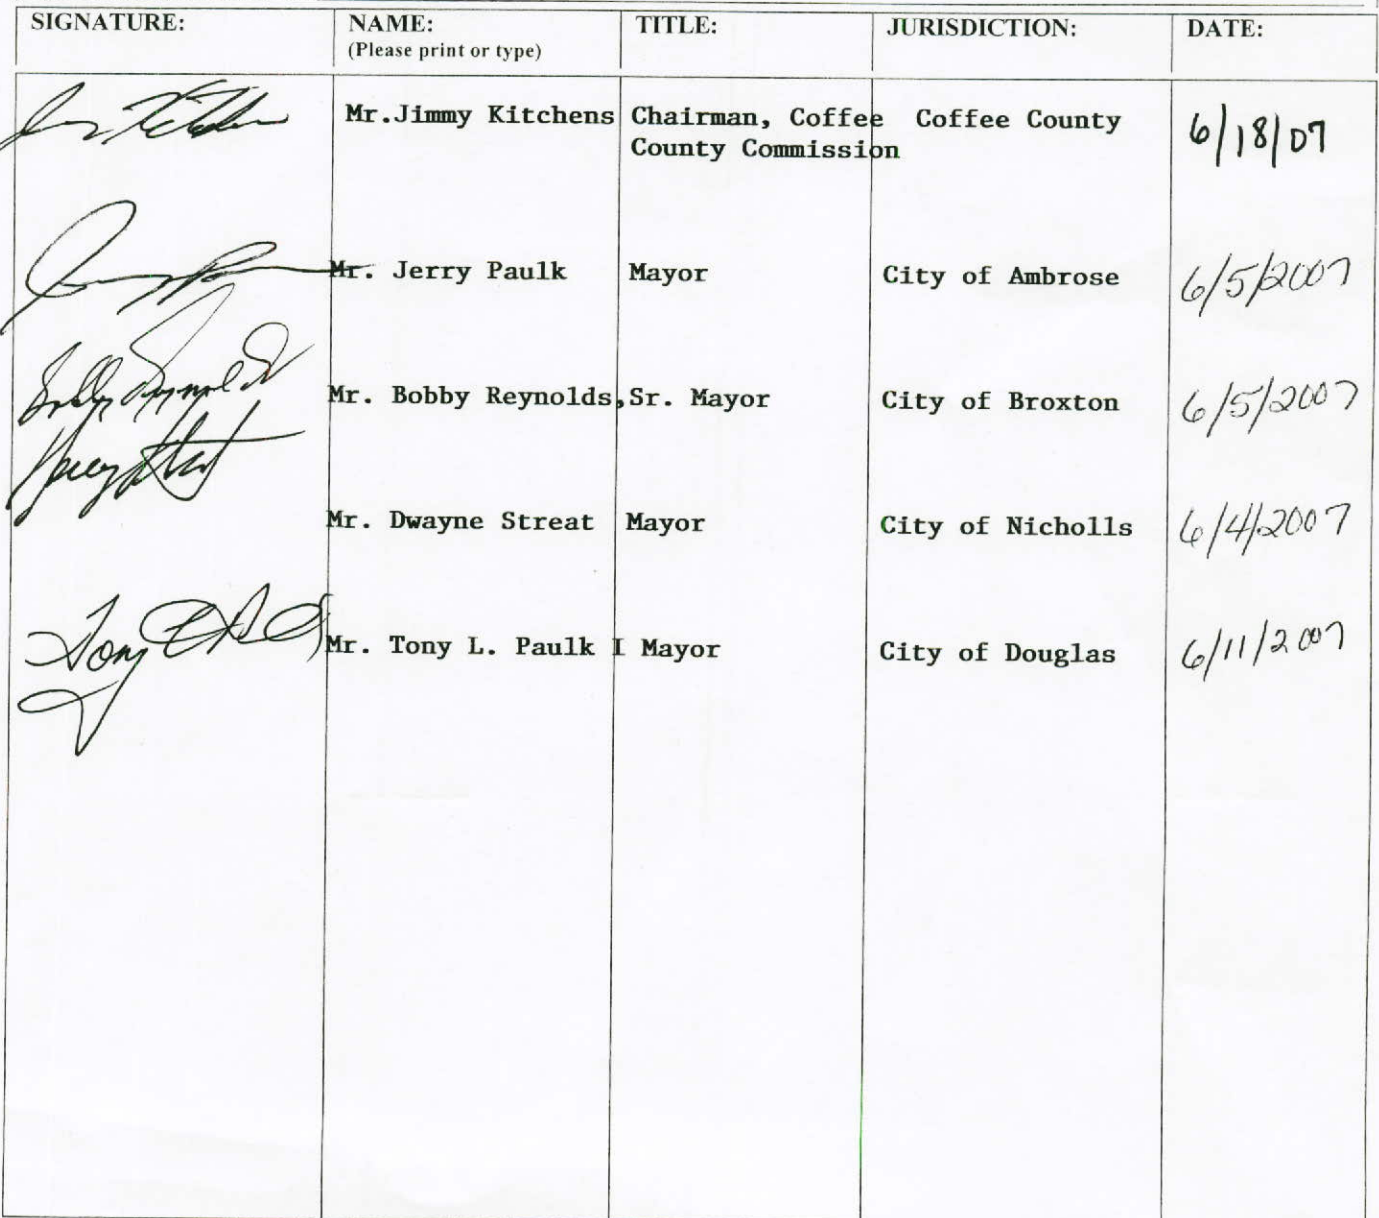 SIGNATURE: NAME: TITLE: JURISDICTION: DATE:
(Please print or type)
Mr.Jimmy Kitchens Chairman, Coffee Coffee County 6/18/07
County Commission
Mr. Jerry Paulk Mayor City of Ambrose 6/5/2007
Bobby Reynolds
Mr. Bobby Reynolds,Sr. Mayor City of Broxton 6/5/2007
Mr. Dwayne Streat Mayor City of Nicholls 6/4/2007
Tony
Mr. Tony L. Paulk I Mayor City of Douglas 6/11/2007